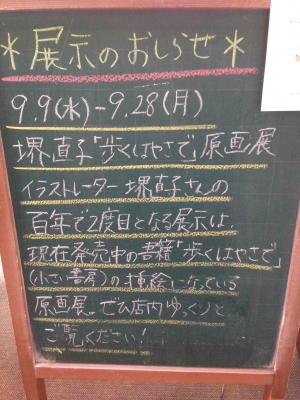 *展示のおしらせ*
9.9(水)-9.28(月)
堺直子「歩くはやさで」原画展
イラストレーター堺直子さんの
百年で2度目となる展示は、
現在発売中の書籍「歩くはやさで」
(小さい書房)の挿絵になっている
原画展。ぜひ店内ゆっくりと
ご覧ください!